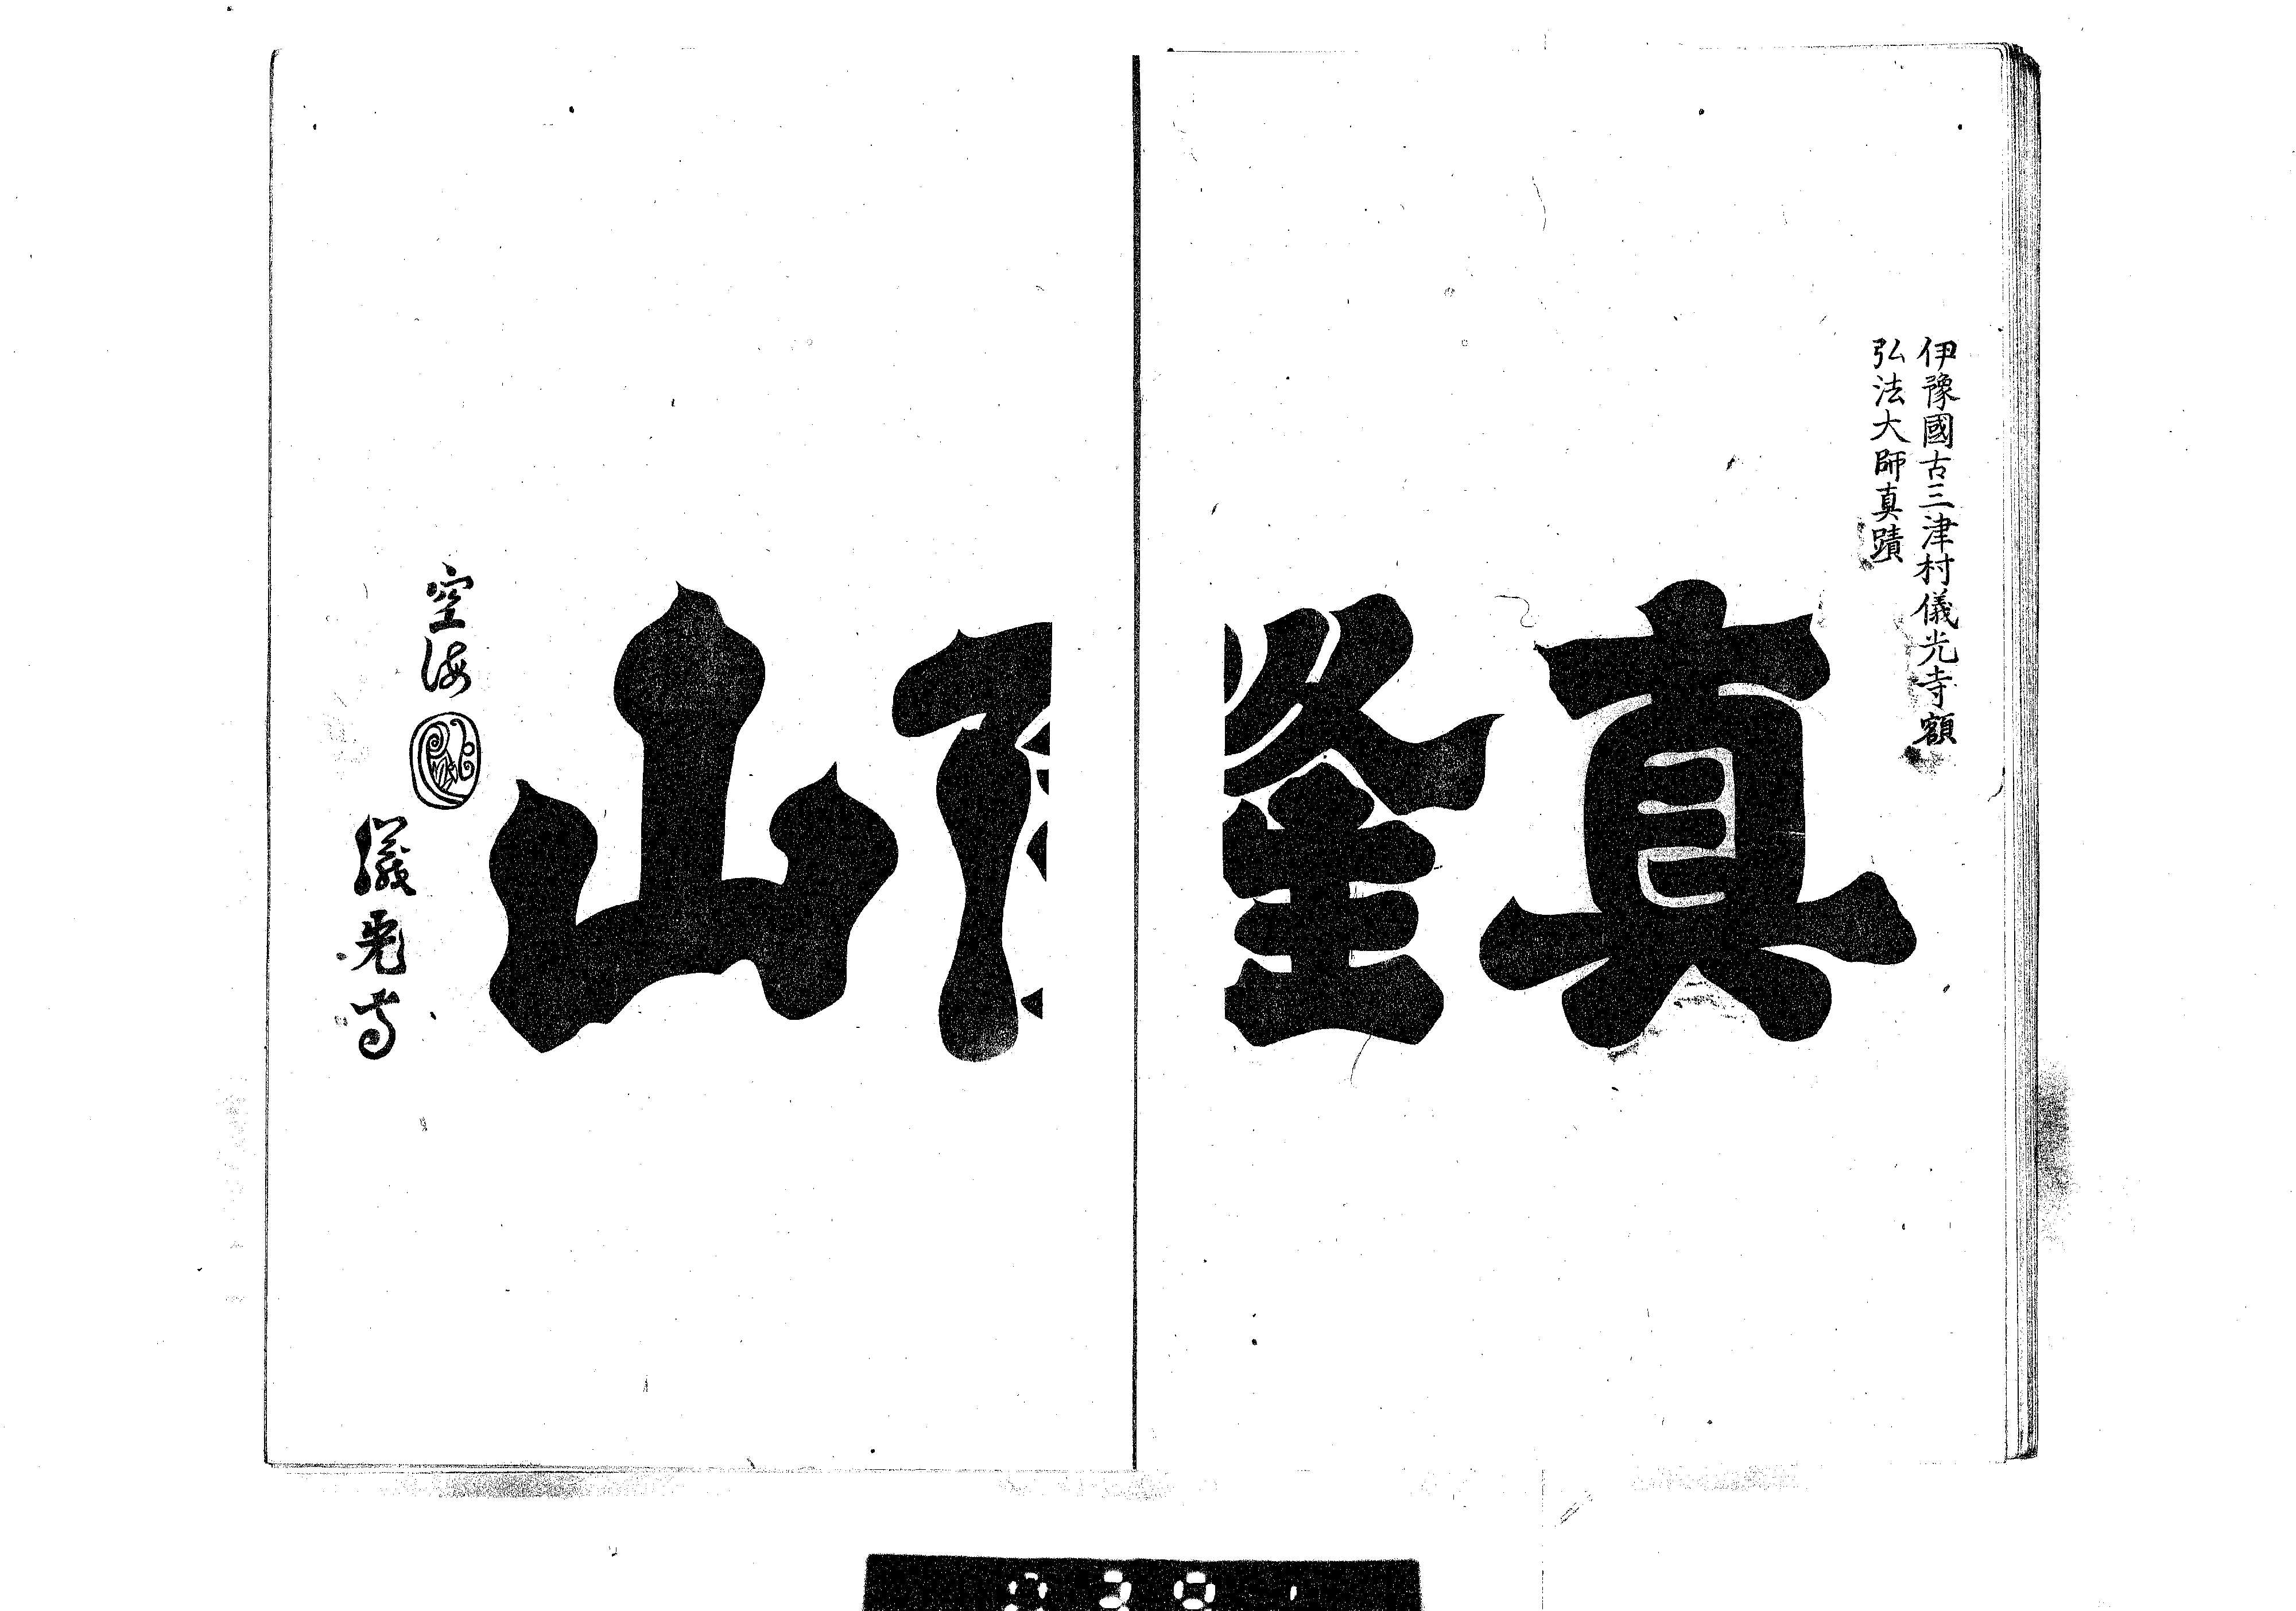 伊豫國古三津村儀光寺額
弘法大師真蹟
真隆山
空海
儀光寺